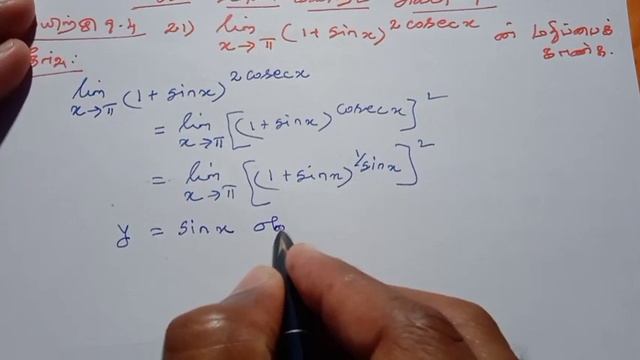 பயிற்சி 9.4 21) lim x→π (1 + sinx)^2cosecx ன் மதிப்பைக் காண்க.
தீர்வு:
lim x→π (1 + sinx)^2cosecx
= lim x→π [(1 + sinx)^cosecx]^2
= lim x→π [(1 + sinx)^1/sinx]^2
y = sinx